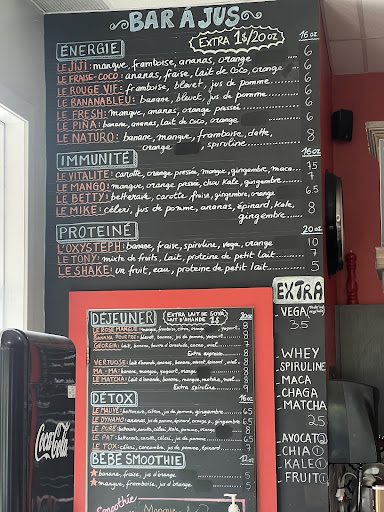 BAR À JUS
EXTRA 1$/20 oz
ÉNERGIE 16 oz
LE JIJI: mangue, framboise, ananas, orange .... 6
LE FRAISE-COCO: ananas, fraise, lait de coco, orange 6
LE ROUGE VIF: framboise, bleuet, jus de pomme 6
LE BANANABLEU: banane, bleuet, jus de pomme 6
LE FRESH: mangue, ananas, orange pressée 6
LE PIÑA: banane, ananas, lait de coco, orange 6
LE NATURO: banane, mangue, framboise, datte, 8
orange, spiruline
IMMUNITÉ 16oz
LE VITALITÉ: carotte, orange pressée, mangue, gingembre, maca... 7.5
LE MANGO: mangue, orange pressée, chou kale, gingembre 7
LE BETTY: betterave, carotte, fraise, gingembre, orange 6.5
LE MIKE: céleri, jus de pomme, ananas, épinard, kale, 8
gingembre
PROTEINÉ 20 oz
L'OXYSTEPH: banane, fraise, spiruline, vega, orange 10
LE TONY: mixte de fruits, lait, protéine de petit lait 7
LE SHAKE: un fruit, eau, protéine de petit lait 5
DÉJEUNER
EXTRA LAIT DE SOYA
LAIT D'AMANDE 1$
LE ROSE MANGUE: mangue, fraise, orange, yogourt 8
BANANA POURPRE: banane, bleuet, jus de pomme, yogourt 8
GEORGIA: lait, banane, beurre d'arachide, cacao, miel 8
Extra espresso
VERTUOSE: lait d'amande, ananas, banane, avocat, épinard, miel 8
MA-MA: banane, mangue, yogourt, orange 8
LE MATCHA: lait d'amande, banane, mangue, matcha, miel 8
Extra spiruline 9
DÉTOX 16 oz
LE MAUVE: betterave, céleri, jus de pomme, gingembre 6.5
LE DYNAMO:
LE PURE:
LE PAT:
LE TOX: céleri, concombre, jus de pomme, épinard 7
BÉBÉ SMOOTHIE
banane, fraise, jus d'orange 5
mangue, framboise, jus d'orange 5
Smoothie
Mangue
EXTRA
VEGA
3.5
WHEY
SPIRULINE
MACA
CHAGA
MATCHA
2.5
AVOCAT 2
CHIA 1
KALE 1
FRUIT 1
Coca-Cola